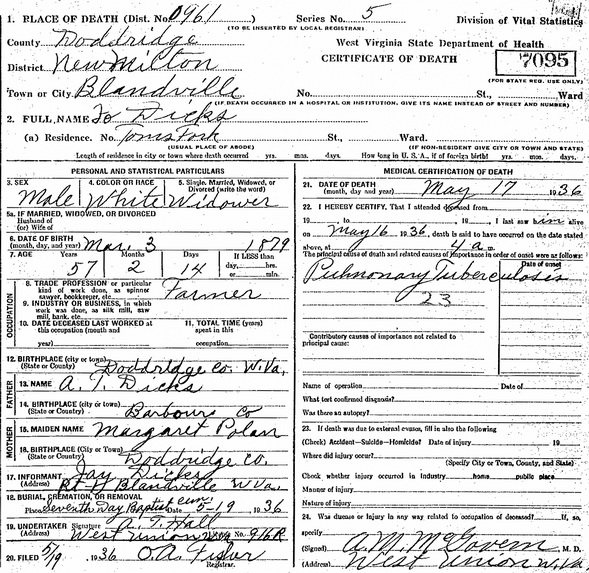 1. PLACE OF DEATH (Dist. No. 0961) Series No. 5 Division of Vital Statistics
(TO BE INSERTED BY LOCAL REGISTRAR)
County Doddridge West Virginia State Department of Health
District New Milton CERTIFICATE OF DEATH 7095
(FOR STATE REG. USE ONLY)
Town or City Blandville No. St., Ward
(IF DEATH OCCURRED IN A HOSPITAL OR INSTITUTION, GIVE ITS NAME INSTEAD OF STREET AND NUMBER)
2. FULL NAME Dicks
(a) Residence. No. Toms Fork St., Ward.
(USUAL PLACE OF ABODE) (IF NON-RESIDENT GIVE CITY OR TOWN AND STATE)
Length of residence in city or town where death occurred yrs. mos. days. How long in U. S. A., if of foreign birth? yrs. mos. days.
PERSONAL AND STATISTICAL PARTICULARS
3. SEX 4. COLOR OR RACE 5. Single, Married, Widowed, or Divorced (write the word)
Male White Widower
5a. IF MARRIED, WIDOWED, OR DIVORCED
Husband of
(or) Wife of
6. DATE OF BIRTH (month, day, and year) Mar. 3 1879
7. AGE Years Months Days If LESS than
57 2 14 day, hrs. or min.
OCCUPATION
8. TRADE PROFESSION or particular kind of work done, as spinner sawyer, bookkeeper, etc. Farmer
9. INDUSTRY OR BUSINESS, in which work was done, as silk mill, saw mill, bank, etc.
10. DATE DECEASED LAST WORKED at this occupation (month and year)
11. TOTAL TIME (years) spent in this occupation
12. BIRTHPLACE (city or town) (State or County) Doddridge Co. W.Va.
FATHER
13. NAME A. T. Dicks
14. BIRTHPLACE (city or town) (State or County) Barbour Co
MOTHER
15. MAIDEN NAME Margaret Polan
16. BIRTHPLACE (city or town) (State or County) Doddridge Co.
17. INFORMANT Jay Dicks
(Address) Blandville W.Va.
18. BURIAL, CREMATION, OR REMOVAL
Place Seventh Day Baptist Cem. Date 5-19 1936
19. UNDERTAKER Signature A. T. Hall
(Address) West Union No. 916R
20. FILED 5/19 1936 O.A. Fisher
Registrar.
MEDICAL CERTIFICATION OF DEATH
21. DATE OF DEATH (month, day, and year) May 17 1936
22. I HEREBY CERTIFY, That I attended deceased from
19 , to , 19 , I last saw him alive
on May 16 1936, death is said to have occurred on the date stated
above, at 4 a m.
The principal cause of death and related causes of importance in order of onset were as follows:
Date of onset
Pulmonary Tuberculosis
23
Contributory causes of importance not related to principal cause:
Name of operation Date of
What test confirmed diagnosis?
Was there an autopsy?
23. If death was due to external causes, fill in also the following
(Check) Accident—Suicide—Homicide? Date of injury 19
Where did injury occur?
(Specify City or Town, County, and State)
Check whether injury occurred in Industry home public place
Manner of injury
Nature of injury
24. Was disease or injury in any way related to occupation of deceased? If, so,
specify
(Signed) A. M. McGovern M. D.
(Address) West Union W.Va